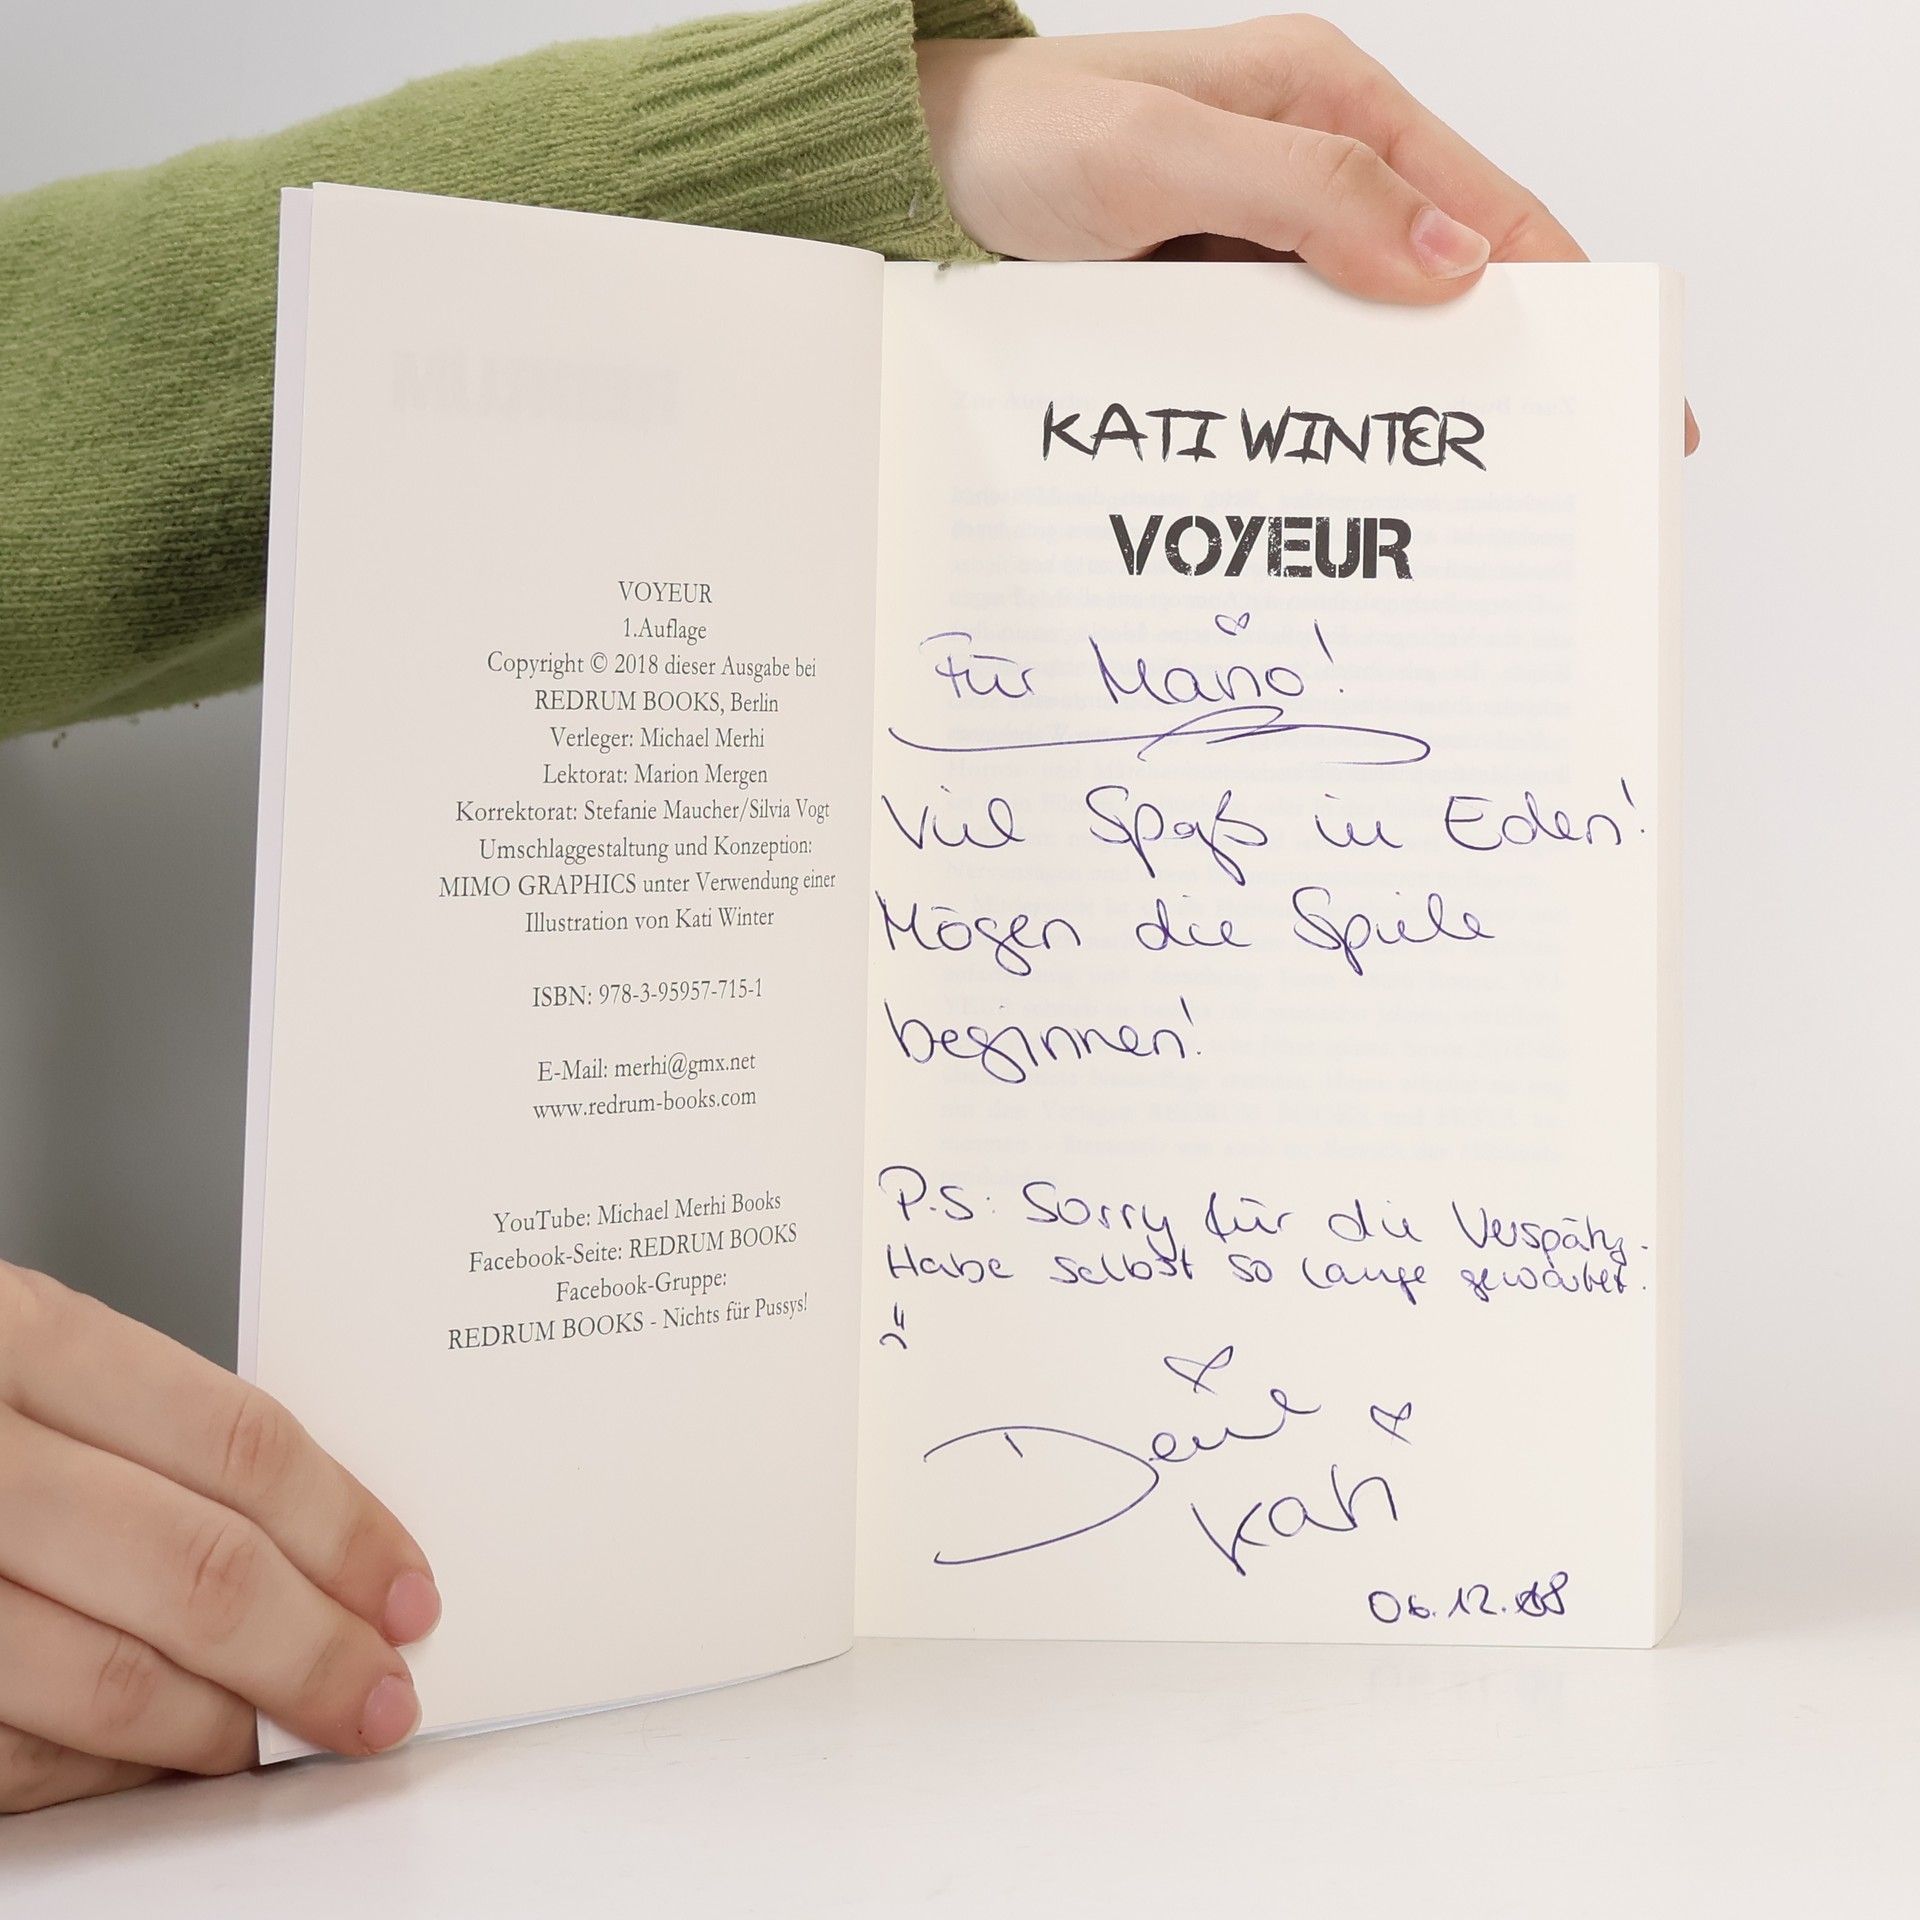 VOYEUR
1.Auflage
Copyright © 2018 dieser Ausgabe bei
REDRUM BOOKS, Berlin
Verleger: Michael Merhi
Lektorat: Marion Mergen
Korrektorat: Stefanie Maucher/Silvia Vogt
Umschlaggestaltung und Konzeption:
MIMO GRAPHICS unter Verwendung einer
Illustration von Kati Winter
ISBN: 978-3-95957-715-1
E-Mail: merhi@gmx.net
www.redrum-books.com
YouTube: Michael Merhi Books
Facebook-Seite: REDRUM BOOKS
Facebook-Gruppe:
REDRUM BOOKS - Nichts für Pussys!
KATI WINTER
VOYEUR
Für Mario!
Viel Spaß in Eden!
Mögen die Spiele
beginnen!
P.S: Sorry für die
Habe selbst so lange gewartet.
Deine
Kati
06.12.18